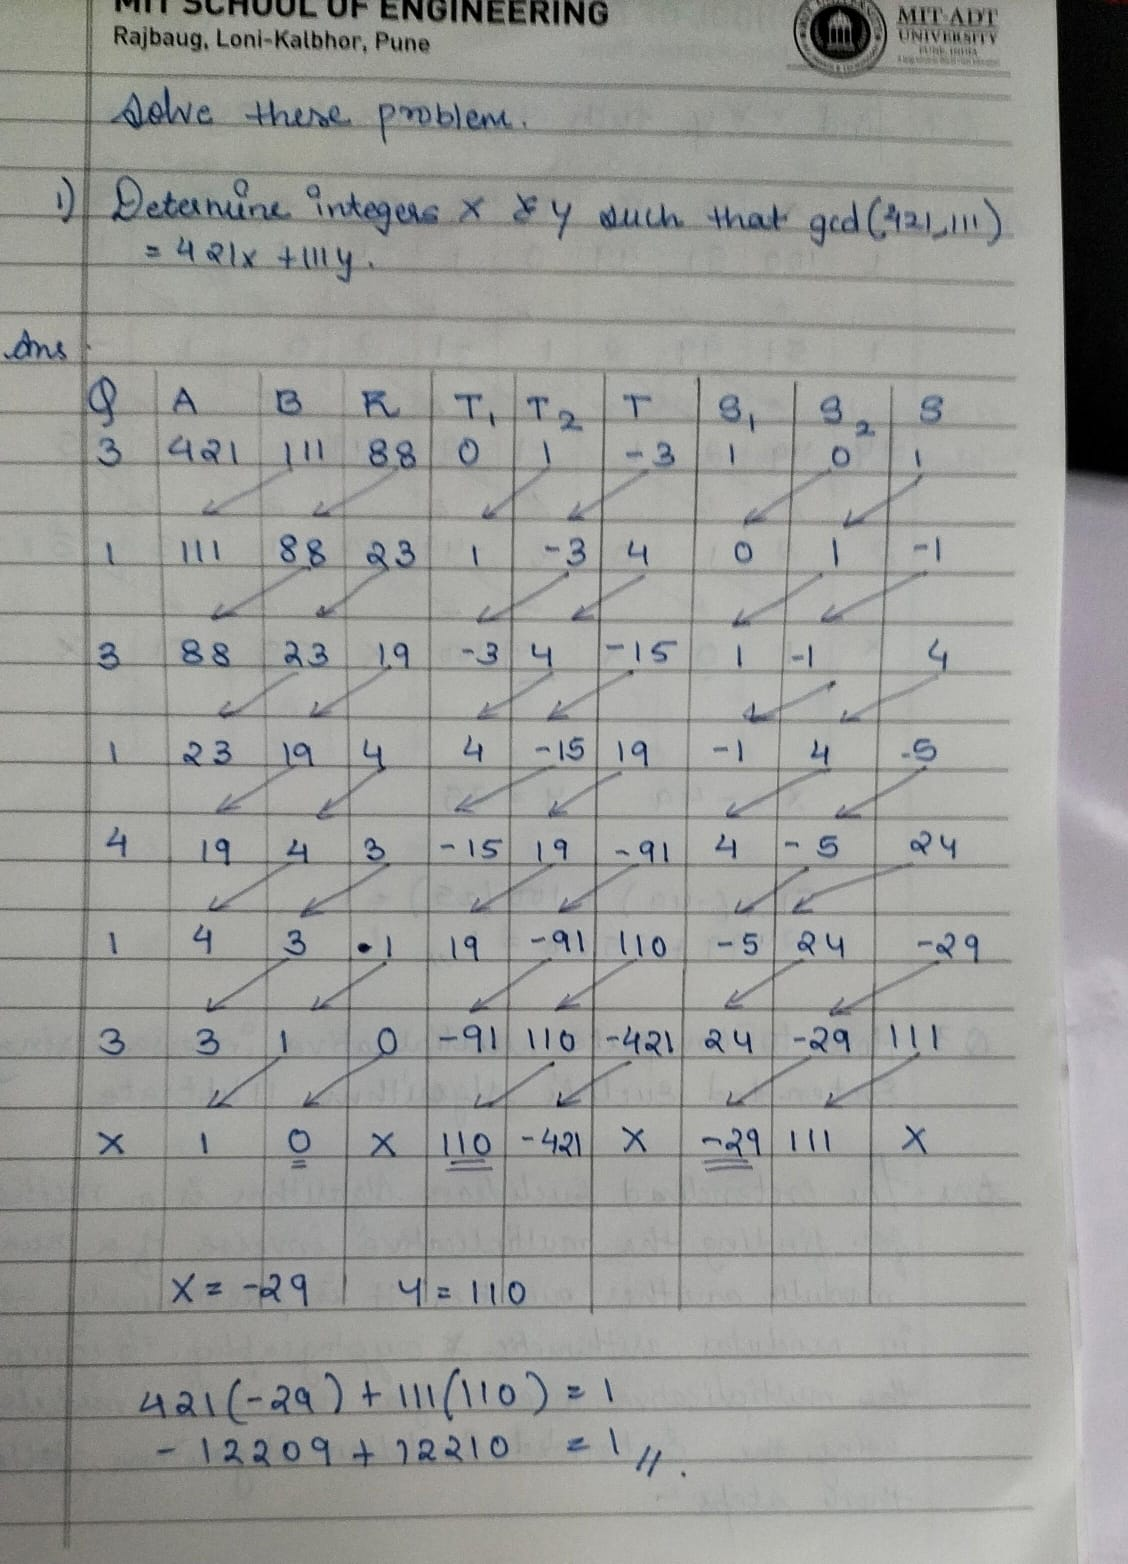 MIT SCHOOL OF ENGINEERING
Rajbaug, Loni-Kalbhor, Pune
MIT-ADT
UNIVERSITY
Solve these problem.
1) Determine integers x & y such that gcd(421,111)
= 421x + 111y.
Ans
Q A B R T1 T2 T S1 S2 S
3 421 111 88 0 1 -3 1 0 1
1 111 88 23 1 -3 4 0 1 -1
3 88 23 19 -3 4 -15 1 -1 4
1 23 19 4 4 -15 19 -1 4 -5
4 19 4 3 -15 19 -91 4 -5 24
1 4 3 1 19 -91 110 -5 24 -29
3 3 1 0 -91 110 -421 24 -29 111
X 1 0 X 110 -421 X -29 111 X
X = -29 Y = 110
421(-29) + 111(110) = 1
-12209 + 12210 = 1 //.